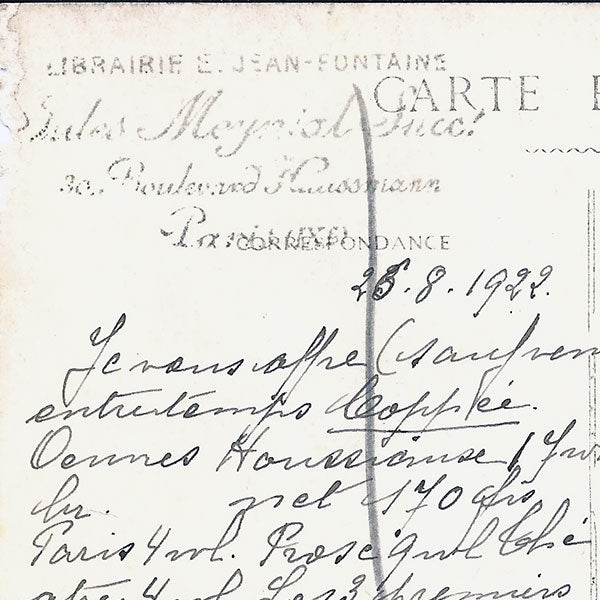 LIBRAIRIE E. JEAN-FONTAINE
CARTE P
Jules Meynial Succ.
30. Boulevard Haussmann
Paris (IXe)
CORRESPONDANCE
25.8.1922.
Je vous offre (sauf ven
entretemps Coppée.
Oeuvres
br. net 170 frs
Paris 4 vol. Prose 9 vol Thé
atre 4 vol Les 3 premiers